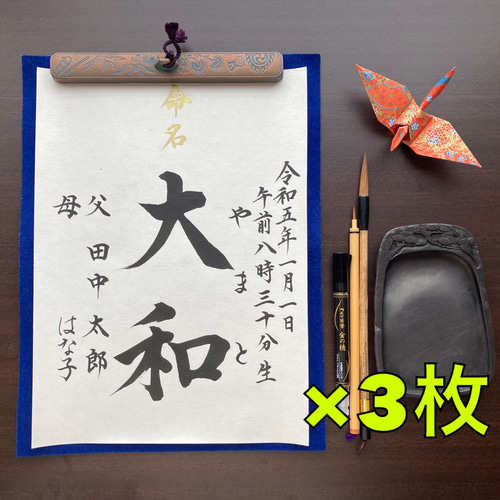 命名
令和五年一月一日
午前八時三十分生
やまと
大和
父 田中 太郎
母 はな子
金の穂
×3枚